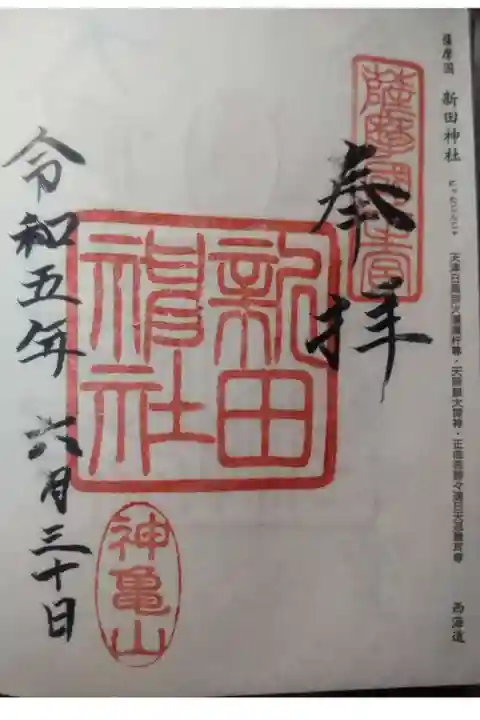 薩摩国 新田神社
天津日高彦火瓊瓊杵尊・天照皇大御神・正哉吾勝々速日天忍穂耳尊
西海道
薩摩國一宮
奉拝
新田
神社
神亀山
令和五年 六月三十日